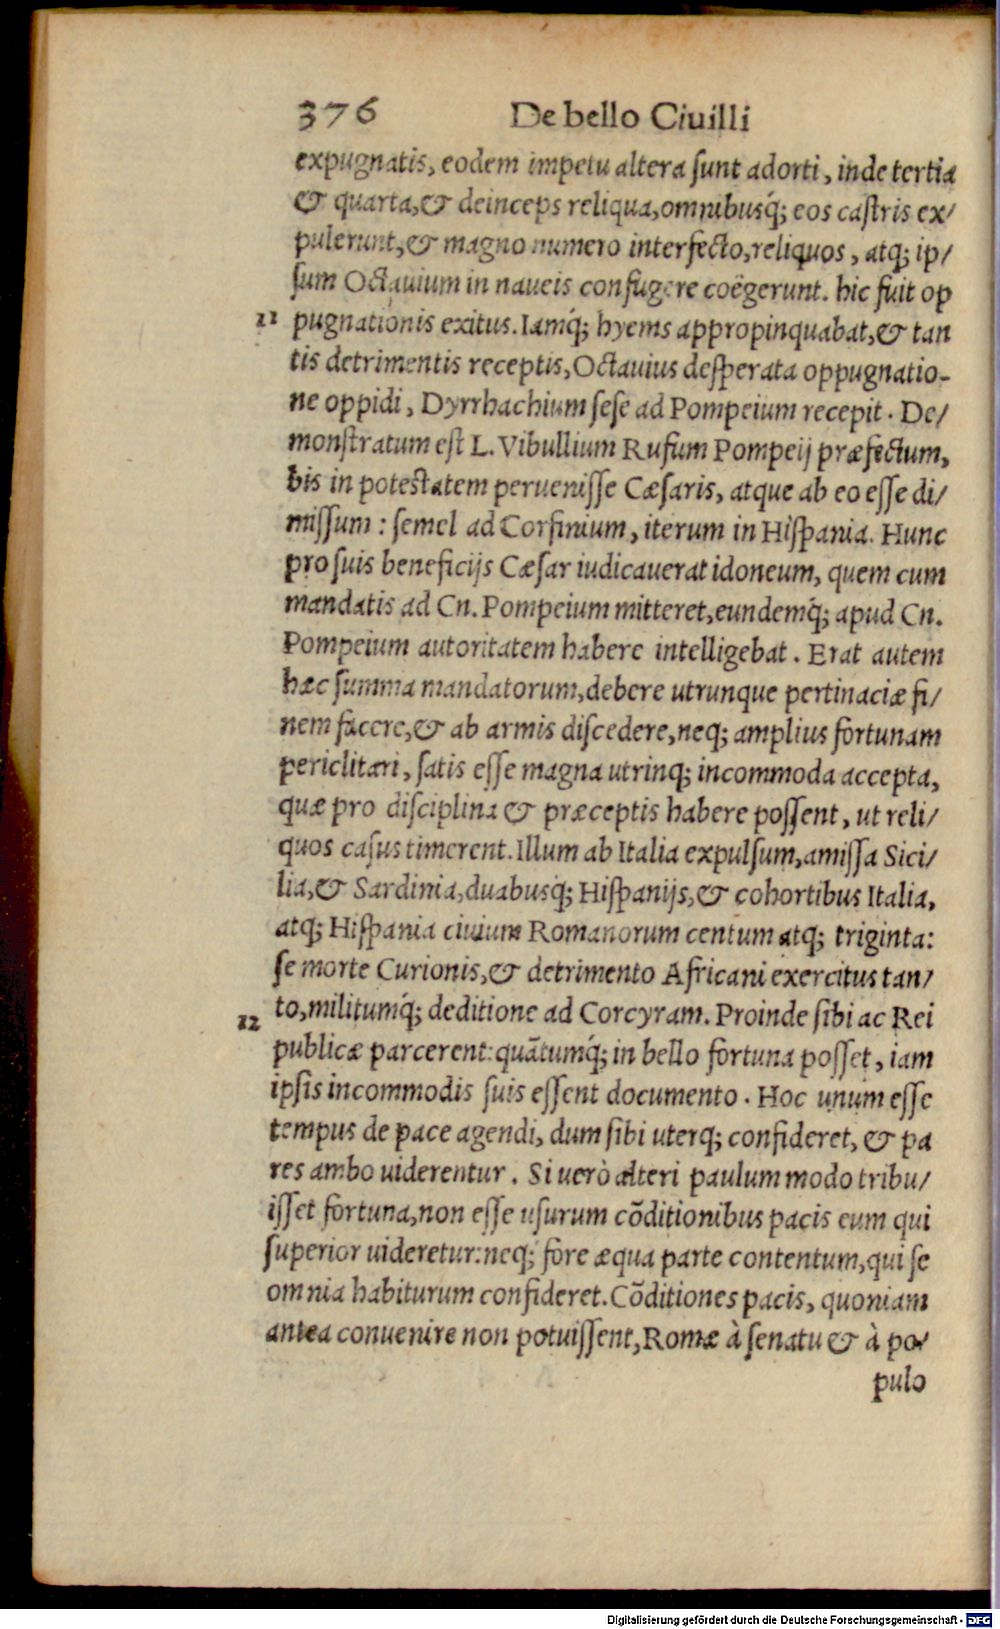 376 De bello Ciuilli
expugnatis, eodem impetu altera sunt adorti, inde tertia
& quarta, & deinceps reliqua, omnibusq́; eos castris ex/
pulerunt, & magno numero interfecto, reliquos, atq; ip/
sum Octauium in naueis confugere coëgerunt. hic fuit op
11 pugnationis exitus. Iamq́; hyems appropinquabat, & tan
tis detrimentis receptis, Octauius desperata oppugnatio-
ne oppidi, Dyrrhachium sese ad Pompeium recepit. De/
monstratum est L. Vibullium Rufum Pompeij præfectum,
bis in potestatem peruenisse Cæsaris, atque ab eo esse di/
missum: semel ad Corfinium, iterum in Hispania. Hunc
pro suis beneficijs Cæsar iudicauerat idoneum, quem cum
mandatis ad Cn. Pompeium mitteret, eundemq́; apud Cn.
Pompeium autoritatem habere intelligebat. Erat autem
hæc summa mandatorum, debere utrunque pertinaciæ fi/
nem facere, & ab armis discedere, neq; amplius fortunam
periclitari, satis esse magna utrinq; incommoda accepta,
quæ pro disciplina & præceptis habere possent, ut reli/
quos casus timerent. Illum ab Italia expulsum, amissa Sici/
lia, & Sardinia, duabusq́; Hispanijs, & cohortibus Italia,
atq; Hispania ciuium Romanorum centum atq; triginta:
se morte Curionis, & detrimento Africani exercitus tan/
to, militumq́; deditione ad Corcyram. Proinde sibi ac Rei
12 publicæ parcerent: quātumq́; in bello fortuna posset, iam
ipsis incommodis suis essent documento. Hoc unum esse
tempus de pace agendi, dum sibi uterq; confideret, & pa
res ambo uiderentur. Si uerò alteri paulum modo tribu/
isset fortuna, non esse usurum cōditionibus pacis eum qui
superior uideretur: neq; fore æqua parte contentum, qui se
omnia habiturum confideret. Cōditiones pacis, quoniam
antea conuenire non potuissent, Romæ à senatu & à po/
pulo
Digitalisierung gefördert durch die Deutsche Forschungsgemeinschaft - DFG